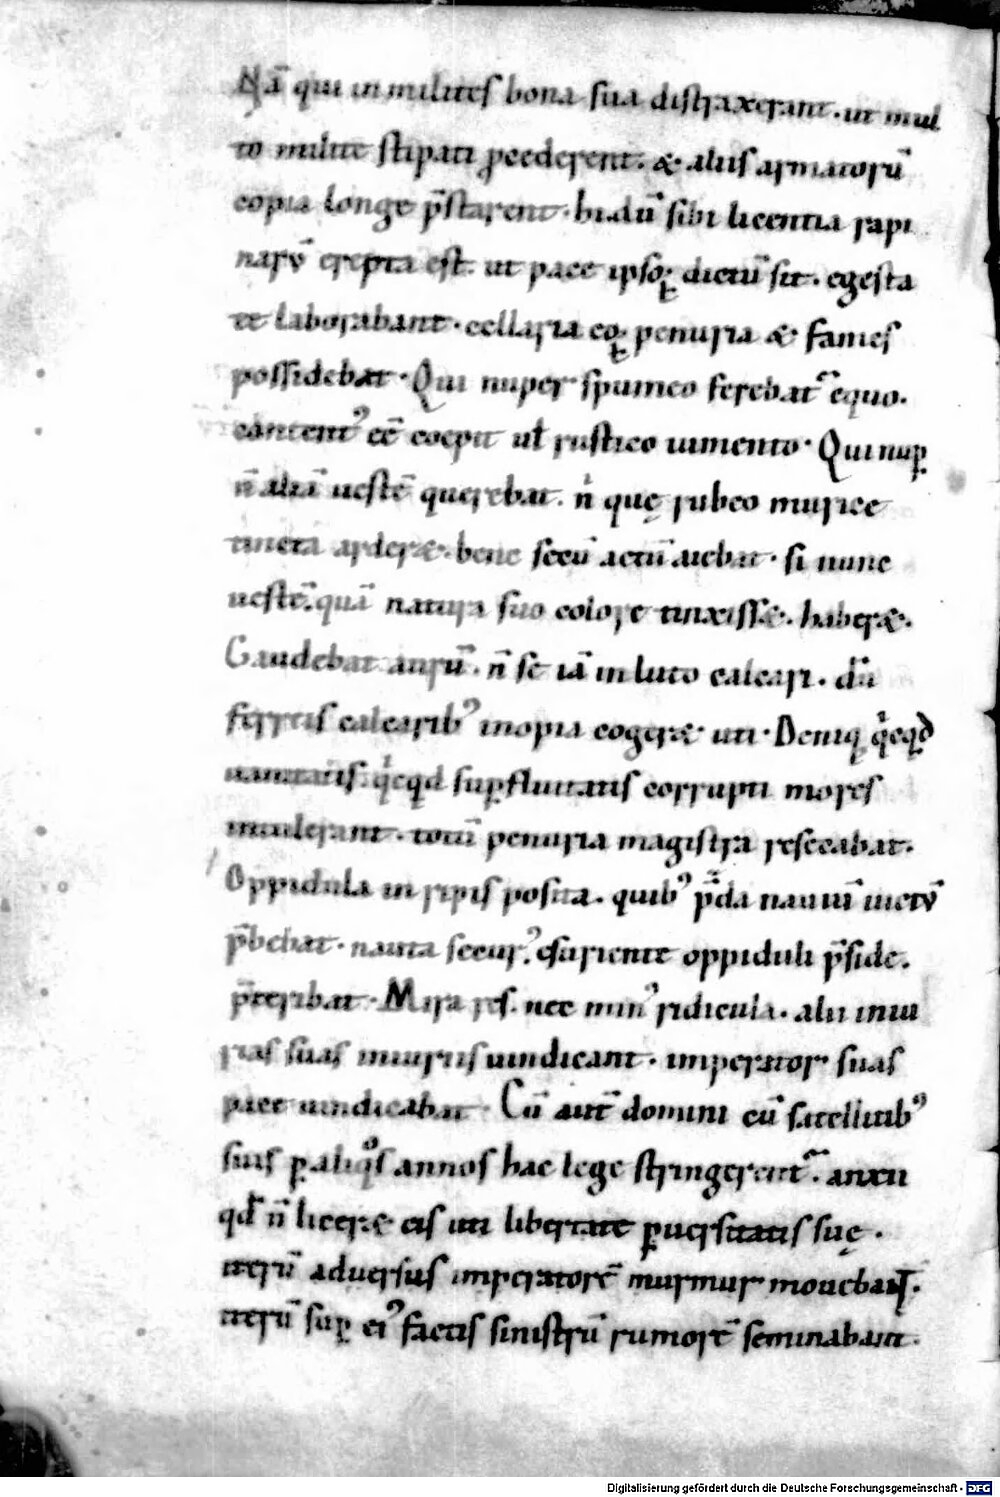 Nā qui in milites bona sua distraxerant. ut mul
to milite stipati p̄cederent. & aliis armatorū
copia longe p̄starent. hi dū sibi licentia rapi
narū erepta est. ut pace ipsoꝝ dictū sit. egesta
te laborabant. cellaria eoꝝ penuria & fames
possidebat. Qui nuper spumeo ferebat᷑ equo.
contentꝰ eē coepit ul̄ rustico iumento. Qui nuꝑ
n̄ aliā uestē querebat. n̄ quę rubeo murice
tinctā arder&. bene secū actū aiebat. si nunc
uestē. quā natura suo colore tinxiss&. haber&.
Gaudebat aurū. n̄ se iā in luto calcari. dū
ferreis calcaribꝰ inopia coger& uti. Deniqꝫ qͥcqd
uanitatis. qͥcqd suꝑfluitatis corrupti mores
intulerant. totū penuria magistra resecabat.
Oppidula in ripis posita. quibꝰ p̄da nauiū uictū
p̄bebat. nauta securꝰ. esuriente oppiduli p̄side.
p̄teribat. Mira res. nec minꝰ ridicula. alii iniu
rias suas iniuriis uindicant. imperator suas
pace uindicabat. Cū aut̄ domini cū satellitibꝰ
suis ꝑ aliqͦs annos hac lege stringerent᷑. anxii
qd̄ n̄ licer& eis uti libertate ꝑuersitatis suę.
iterū aduersus imperatorē murmur mouebant.
iterū suꝑ eiꝰ factis sinistrū rumorē seminabant.
Digitalisierung gefördert durch die Deutsche Forschungsgemeinschaft - DFG